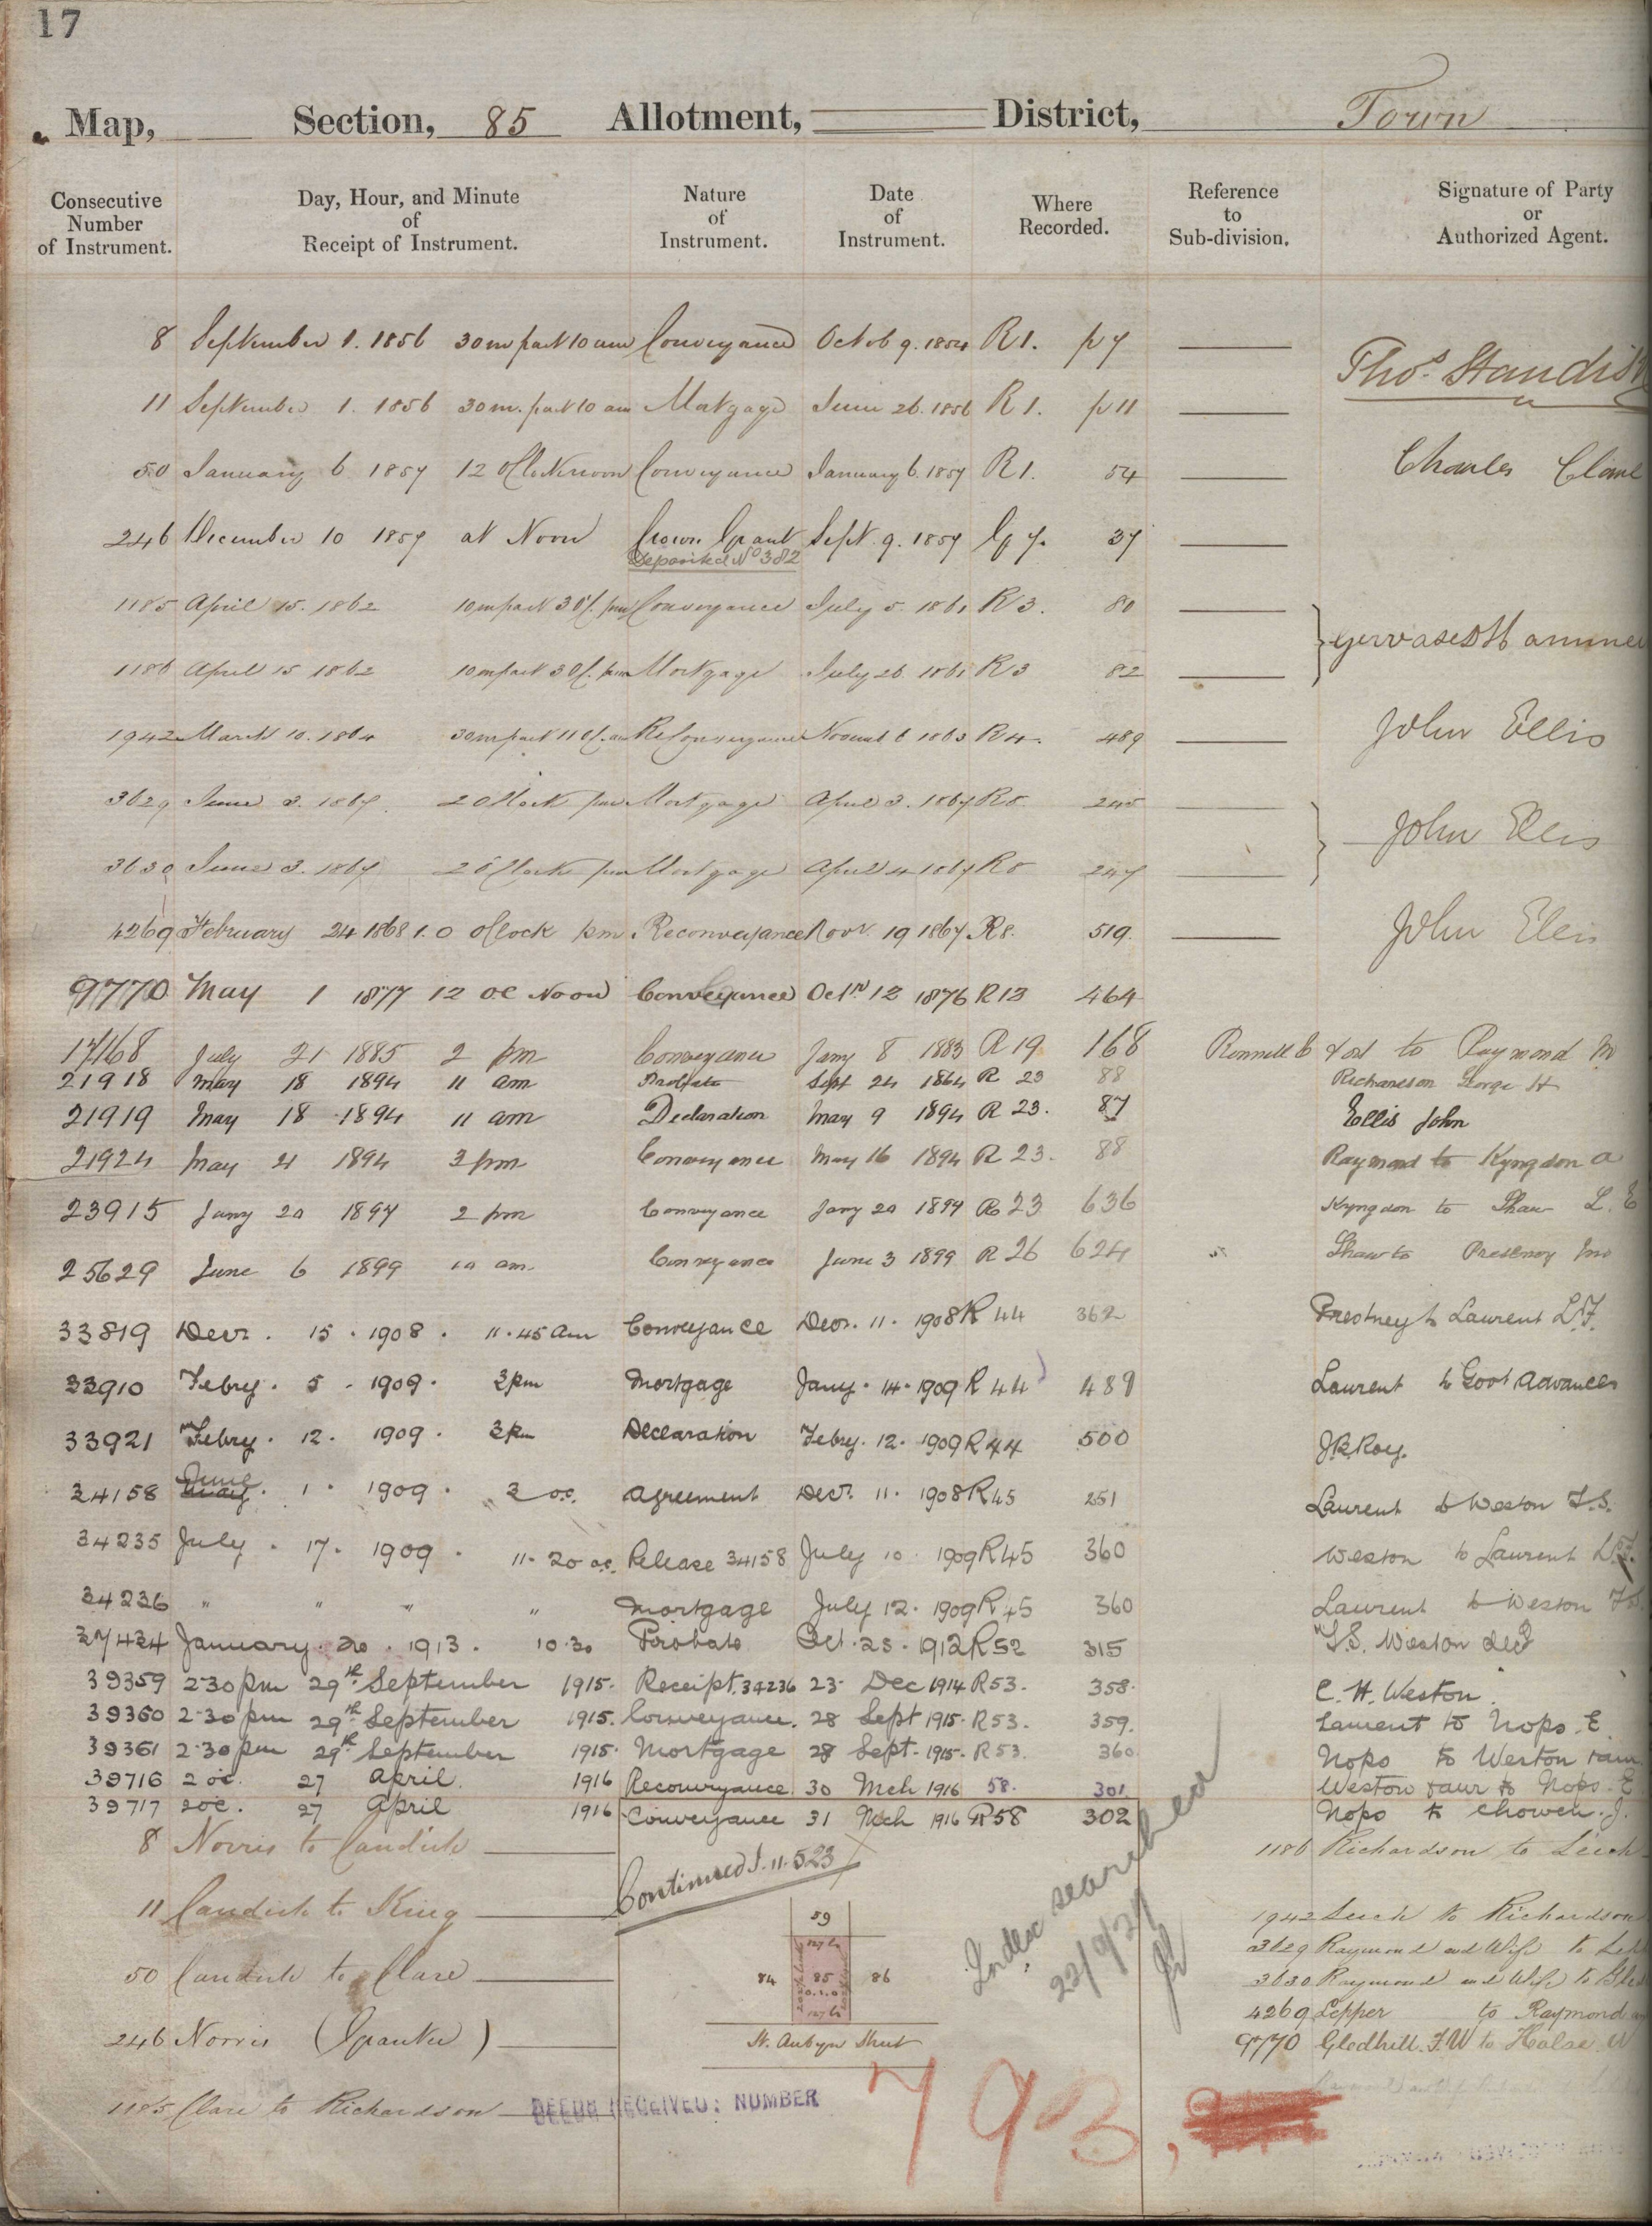 17
Map, Section, 85 Allotment, District, Town
Consecutive Number of Instrument. Day, Hour, and Minute of Receipt of Instrument. Nature of Instrument. Date of Instrument. Where Recorded. Reference to Sub-division. Signature of Party or Authorized Agent.
8 September 1. 1856 30 m past 10 am Conveyance Octob 9. 1854 R 1. p 7 Thos. Standish
11 September 1. 1856 30 m. past 10 am Mortgage June 26. 1856 R 1. p 11
50 January 6 1857 12 O'Clock noon Conveyance January 6. 1857 R 1. 54 Charles
246 December 10 1857 at Noon Crown Grant Sept. 9. 1857 G 7. 37
Deposited No 382
1185 April 15. 1862 10 m past 3 O'C. pm Conveyance July 5. 1861 R 3. 80
1186 April 15 1862 10 m past 3 O'C. pm Mortgage July 26 1861 R 3 82
1942 March 10. 1864 30 m past 11 O'C. am Reconveyance 6 1863 R 4. 489 John Ellis
3629 June 3. 1867. 2 O'Clock pm Mortgage April 3. 1867 R 8 245 John Ellis
3630 June 3. 1867 2 O'Clock pm Mortgage April 4 1867 R 8 247
4269 February 24 1868 1.0 o'Clock pm Reconveyance Novr. 19 1867 R 8. 519. John Ellis
9770 May 1 1877 12 oC Noon Conveyance Octr 12 1876 R 13 464
17168 July 21 1885 2 pm Conveyance Jany 8 1883 R 19 168 to Raymond
21918 May 18 1894 11 am Probate Sept 24 1864 R 23 88 Richardson George
21919 May 18 1894 11 am Declaration May 9 1894 R 23. 87 Ellis John
21924 May 21 1894 3 pm Conveyance May 16 1894 R 23. 88 Raymond to Kyngdon A
23915 Jany 20 1897 2 pm Conveyance Jany 20 1897 R 23 636 Kyngdon to Shaw L. E
25629 June 6 1899 10 am. Conveyance June 3 1899 R 26 624 Shaw to Prestney
33819 Decr. 15. 1908. 11.45 am Conveyance Decr. 11. 1908 R 44 362 Prestney to Laurent L.F.
33910 Febry. 5. 1909. 3 pm Mortgage Jany. 14. 1909 R 44 489 Laurent to Govt Advances
33921 Febry. 12. 1909. 3 pm Declaration Febry. 12. 1909 R 44 500 J.B. Roy.
34158 May June 1. 1909. 3 o.c. Agreement Decr. 11. 1908 R45 251 Laurent to Weston T.S.
34235 July. 17. 1909. 11.20 oc. Release 34158 July 10. 1909 R45 360 Weston to Laurent L.F.
34236 " " " " Mortgage July 12. 1909 R45 360 Laurent to Weston T.S.
37434 January. 20. 1913. 10.30 Probate Oct. 23. 1912 R52 315 T.S. Weston decd
39359 2.30 pm 29th September 1915. Receipt. 34236 23. Dec 1914 R53. 358. C. H. Weston.
39360 2.30 pm 29th September 1915. Conveyance. 28 Sept 1915. R53. 359. Laurent to Nops. E
39361 2.30 pm 29th September 1915. Mortgage 28 Sept. 1915. R53. 360 Nops to Weston & anr
39716 2 oc. 27 April. 1916 Reconveyance. 30 Mch 1916 58. 301 Weston & anr to Nops. E
39717 2 oc. 27 April 1916 Conveyance 31 Mch 1916 R58 302 Nops to Chowen. J.
8 Norris to Candish
Continued I. 11. 523
1186 Richardson to Leech
11 Candish to King
1942 Leech to Richardson
3629 Raymond and Wife to
50 Candish to Clare
3630 Raymond and Wife to
4269 Lepper to Raymond
246 Norris (Grantee)
9770 Gledhill. F.W to Halse. W
1185 Clare to Richardson
59
127 lks
84 85 86
0.1.0
127 lks
St. Aubyn Street
Index searched
22/9/21
DEEDS RECEIVED: NUMBER
793,